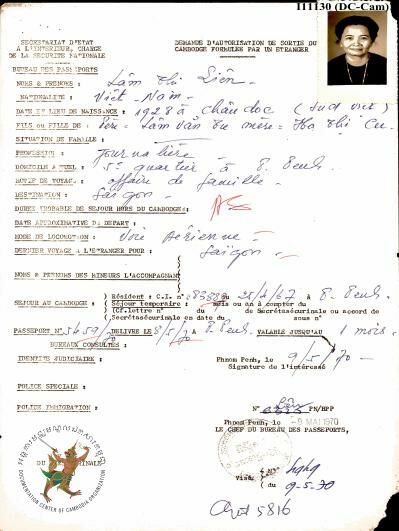 111130 (DC-Cam)
SECRETARIAT D'ETAT
A L'INTERIEUR, CHARGE
DE LA SECURITE NATIONALE
DEMANDE D'AUTORISATION DE SORTIE DU
CAMBODGE FORMULEE PAR UN ETRANGER
BUREAU DES PASSEPORTS
NOMS & PRENOMS : Lâm thi Liên
NATIONALITE : Viêt-Nam
DATE ET LIEU DE NAISSANCE : 1928 à Châu doc (Sud viet)
FILS ou FILLE DE : Père = Lâm Van Du mère = Ha Thi Cu
SITUATION DE FAMILLE :
PROFESSION : Journalière
DOMICILE ACTUEL : 5e quartier à P. Penh
MOTIF DE VOYAGE : affaire de famille
DESTINATION : Saïgon
DUREE PROBABLE DE SEJOUR HORS DU CAMBODGE :
DATE APPROXIMATIVE DU DEPART :
MODE DE LOCOMOTION : Voie Aérienne
DERNIER VOYAGE A L'ETRANGER POUR : Saïgon
NOMS & PRENOMS DES MINEURS L'ACCOMPAGNANT
SEJOUR AU CAMBODGE :
Résident : C.I. n° du 25/4/67 à P. Penh
Séjour temporaire : mois ou an à compter du
(Cf.lettre n° du de Secrétasécurinale ou accord de
Secrétasécurinale en date du sous n°
PASSEPORT N° 5659/70 DELIVRE LE 8/5/70 à P. Penh VALABLE JUSQU'AU 1 mois
BUREAUX CONSULTES :
IDENTITE JUDICIAIRE :
Phnom Penh, le 9/5/70
Signature de l'intéressé
POLICE SPECIALE :
POLICE IMMIGRATION :
N° PN/BPP
Phnom Penh, le -9 MAI 1970
LE CHEF DU BUREAU DES PASSEPORTS,
Visa
( du 9-5-70
5816
DOCUMENTATION CENTER OF CAMBODIA ORGANIZATION